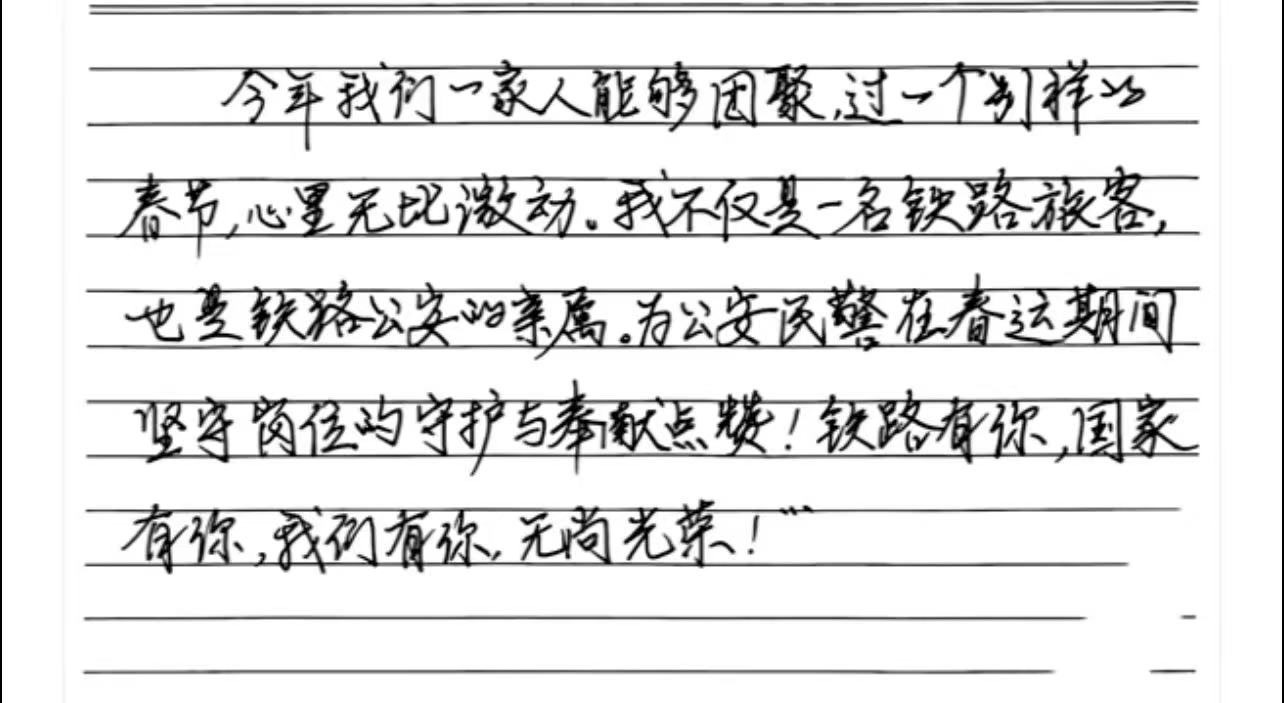 今年我们一家人能够团聚,过一个别样的
春节,心里无比激动。我不仅是一名铁路旅客,
也是铁路公安的亲属。为公安民警在春运期间
坚守岗位的守护与奉献点赞!铁路有你,国家
有你,我们有你,无尚光荣!…